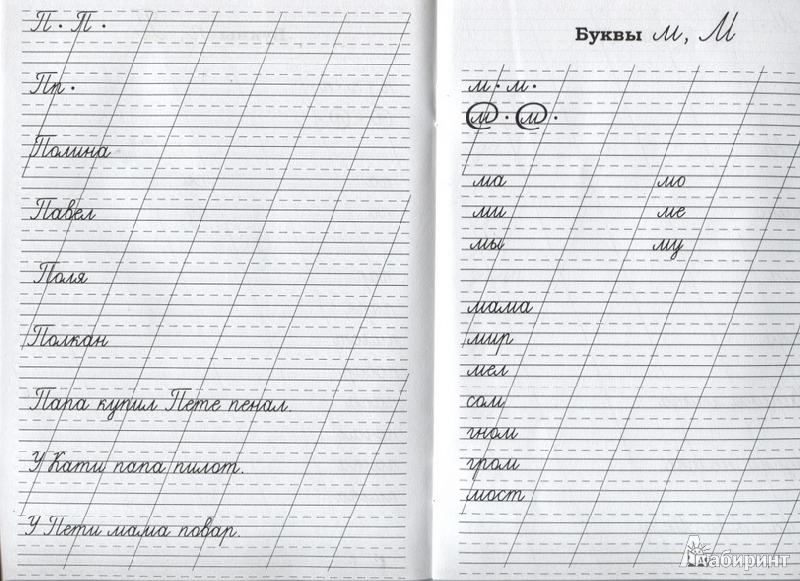 П · П ·
Пп ·
Полина
Павел
Поля
Полкан
Папа купил Пете пенал.
У Кати папа пилот.
У Пети мама повар.
Буквы м, М
м · м ·
м · м ·
ма мо
ми ме
мы му
мама
мир
мел
сом
гном
гром
мост
Лабиринт